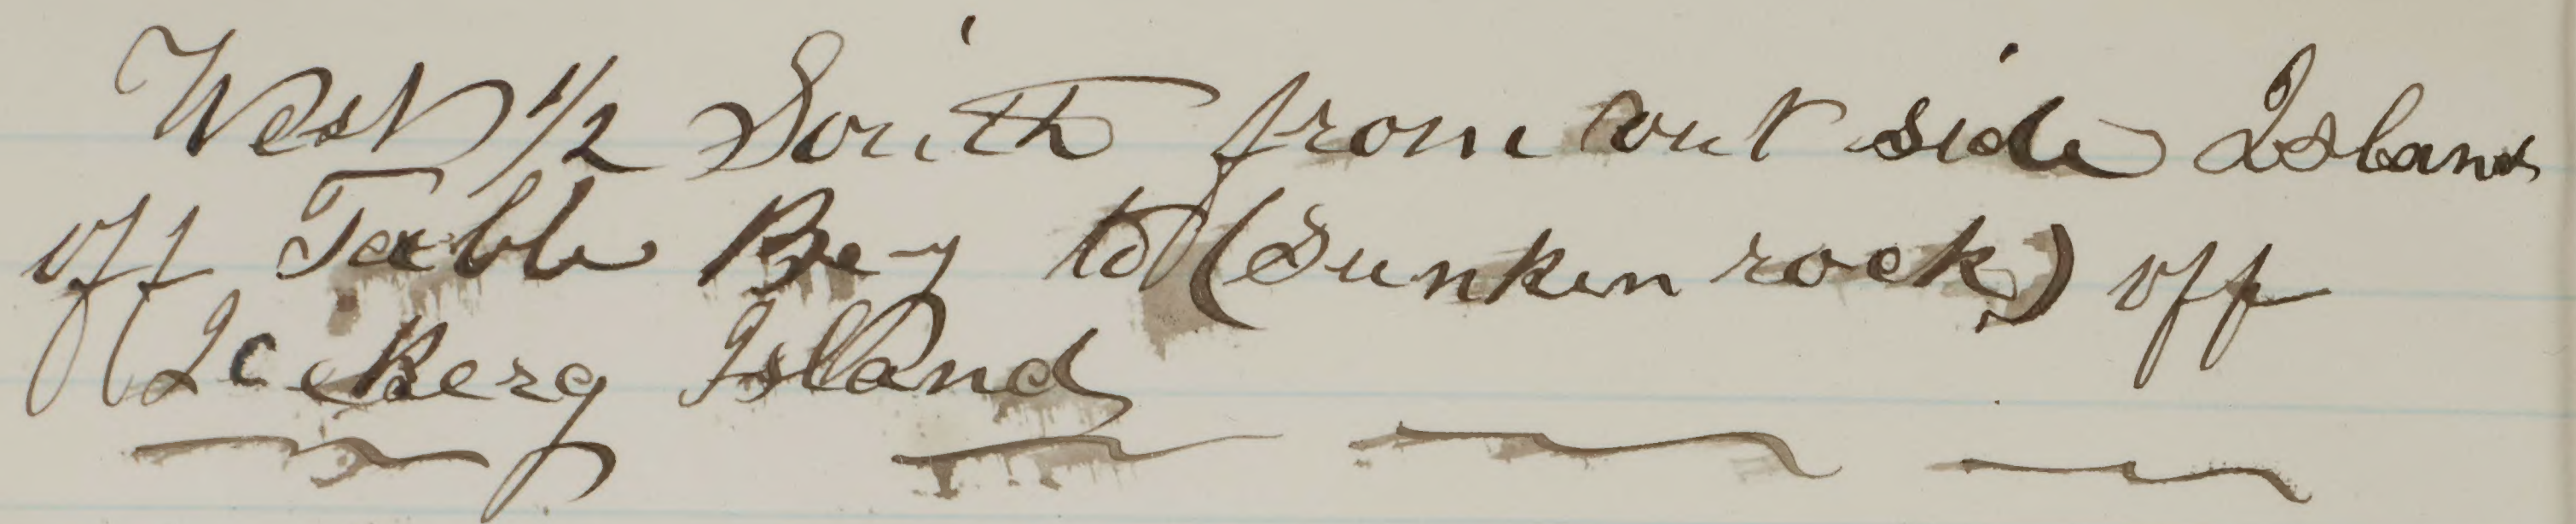 West 1/2 South from out side Island
off Table Bay to (Sunken rock) off
IceBerg Island